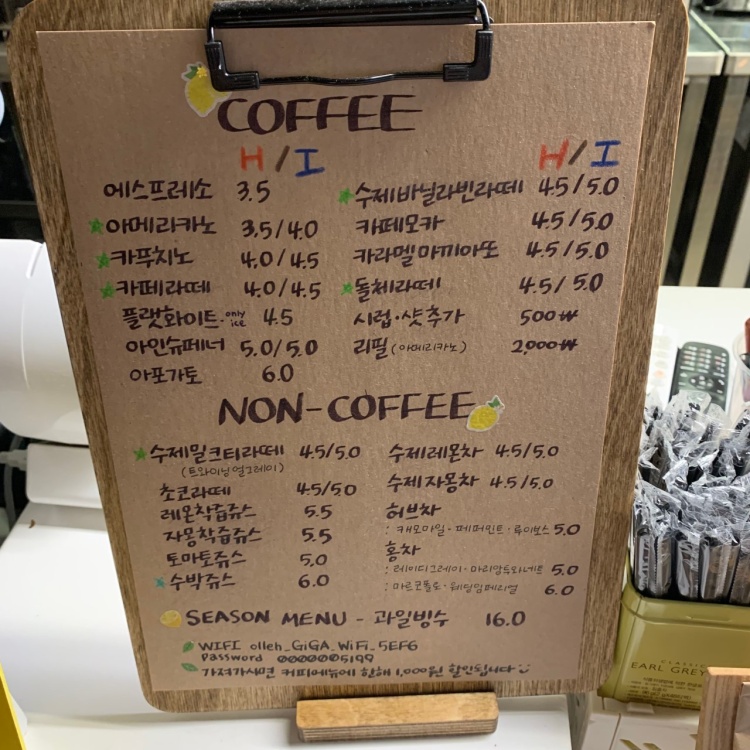 COFFEE
H/I
에스프레소 3.5
아메리카노 3.5/4.0
카푸치노 4.0/4.5
카페라떼 4.0/4.5
플랫화이트 · only ice 4.5
아인슈페너 5.0/5.0
아포가토 6.0
H/I
수제바닐라빈라떼 4.5/5.0
카페모카 4.5/5.0
카라멜마끼아또 4.5/5.0
돌체라떼 4.5/5.0
시럽·샷추가 500₩
리필 (아메리카노) 2,000₩
NON-COFFEE
수제밀크티라떼 4.5/5.0
(트와이닝얼그레이)
초코라떼 4.5/5.0
레몬착즙쥬스 5.5
자몽착즙쥬스 5.5
토마토쥬스 5.0
수박쥬스 6.0
수제레몬차 4.5/5.0
수제자몽차 4.5/5.0
허브차
: 캐모마일 · 페퍼민트 · 루이보스 5.0
홍차
: 레이디그레이 · 마리앙투와네트 5.0
: 마르코폴로 · 웨딩임페리얼 6.0
SEASON MENU - 과일빙수 16.0
WIFI olleh_GiGA_WiFi_5EF6
Password 0000005199
가져가시면 커피메뉴에 한해 1,000원 할인됩니다
CLASSIC
EARL GREY